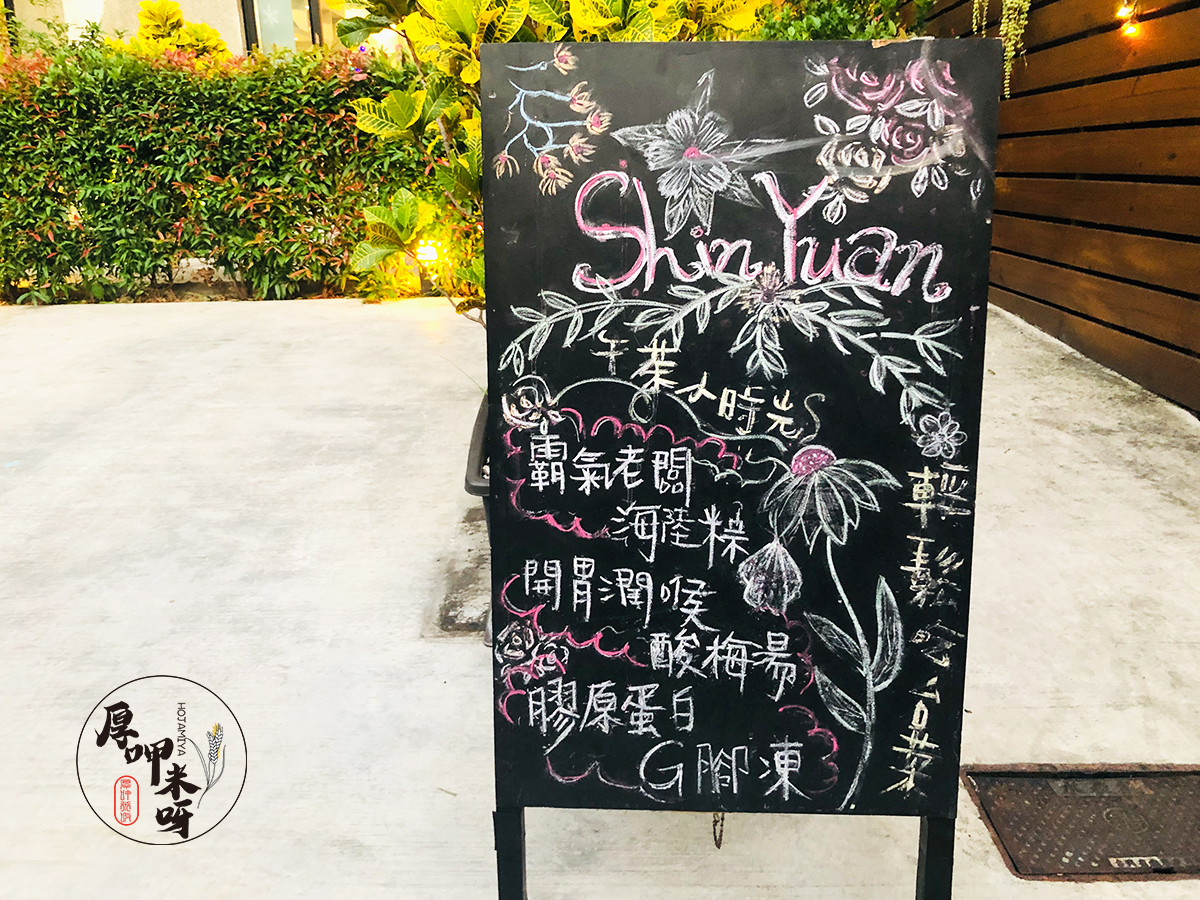 Shin Yuan
午茶小時光
霸氣老闆
海陸粽
開胃潤喉
酸梅湯
膠原蛋白
G腳凍
輕鬆喝下午茶
厚呷米呀
HOJAMIYA